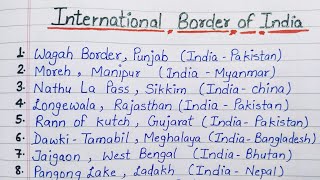 International Border of India
1. Wagah Border, Punjab (India - Pakistan)
2. Moreh, Manipur (India - Myanmar)
3. Nathu La Pass, Sikkim (India - China)
4. Longewala, Rajasthan (India - Pakistan)
5. Rann of kutch, Gujarat (India - Pakistan)
6. Dawki - Tamabil, Meghalaya (India - Bangladesh)
7. Jaigaon, West Bengal (India - Bhutan)
8. Pangong Lake, Ladakh (India - Nepal)